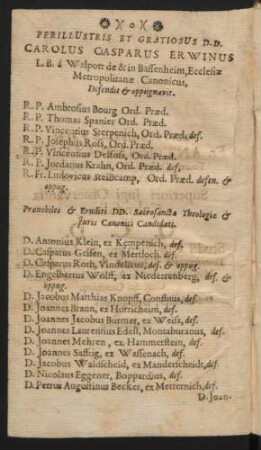 PERILLUSTRIS ET GRATIOSUS D.D.
CAROLUS CASPARUS ERWINUS
L. B. à Walpott de & in Bassenheim, Ecclesiæ
Metropolitanæ Canonicus,
Defendit & oppugnavit.
R. P. Ambrosius Bourg Ord. Præd.
R. P. Thomas Spanier Ord. Præd.
R. P. Vincentius Sterpenich, Ord. Præd. def.
R. P. Josephus Rosi, Ord. Præd.
R. P. Vincentius Delfoss, Ord. Præd.
R. P. Jordanus Krahn, Ord. Præd. def.
R. Fr. Ludovicus Steincamp, Ord. Præd. defen. &
oppug.
Prænobiles & Eruditi DD. Sacrosanctæ Theologiæ &
Juris Canonici Candidati.
D. Antonius Klein, ex Kempenich, def.
D. Casparus Geisen, ex Mertloch. def.
D. Casparus Roth, Vindelicus, def. & oppug.
D. Engelbertus Wolff, ex Niederenberg, def. &
oppug.
D. Jacobus Matthias Knopff, Confluus, def.
D. Joannes Braun, ex Hirtzicheim, def.
D. Joannes Jacobus Burmer, ex Weiss, def.
D. Joannes Laurentius Edell, Montaburanus, def.
D. Joannes Mehren, ex Hammerstein, def.
D. Joannes Saffrig, ex Wassenach, def.
D. Jacobus Waldscheid, ex Manderscheidt, def.
D. Nicolaus Eggener, Boppardius, def.
D. Petrus Augustinus Becker, ex Metternich, def.
D. Joan-